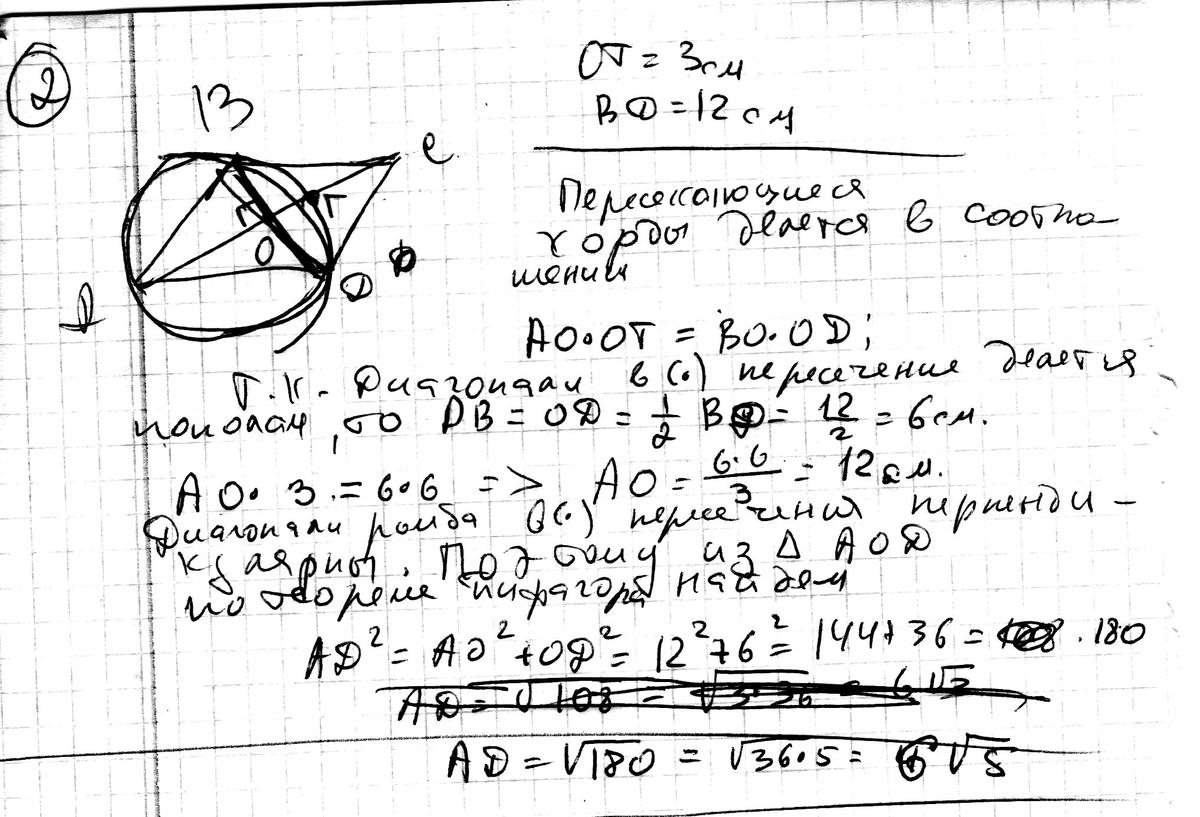 2
OT = 3см
BD = 12 см
B
C
T
O
A
D
Пересекающиеся
хорды делятся в соотно-
шении
AO·OT = BO·OD;
Т.к. Диагонали в (·) пересечение делятся
пополам, то DB = OD = 1/2 BD = 12/2 = 6см.
AO·3 = 6·6 => AO = 6·6/3 = 12см.
Диагонали ромба в (·) пересечения перпенди-
кулярны. Поэтому из Δ AOD
по теореме пифагора найдем
AD² = AO² + OD² = 12² + 6² = 144 + 36 = 180
AD = √108 = √3·36 = 6√3
AD = √180 = √36·5 = 6√5